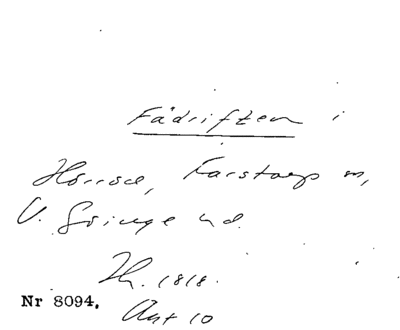 Fädriften i
Hörröd, Farstorp sn,
V. Göinge hd.
Th. 1818.
Nr 8094.
Akt 10